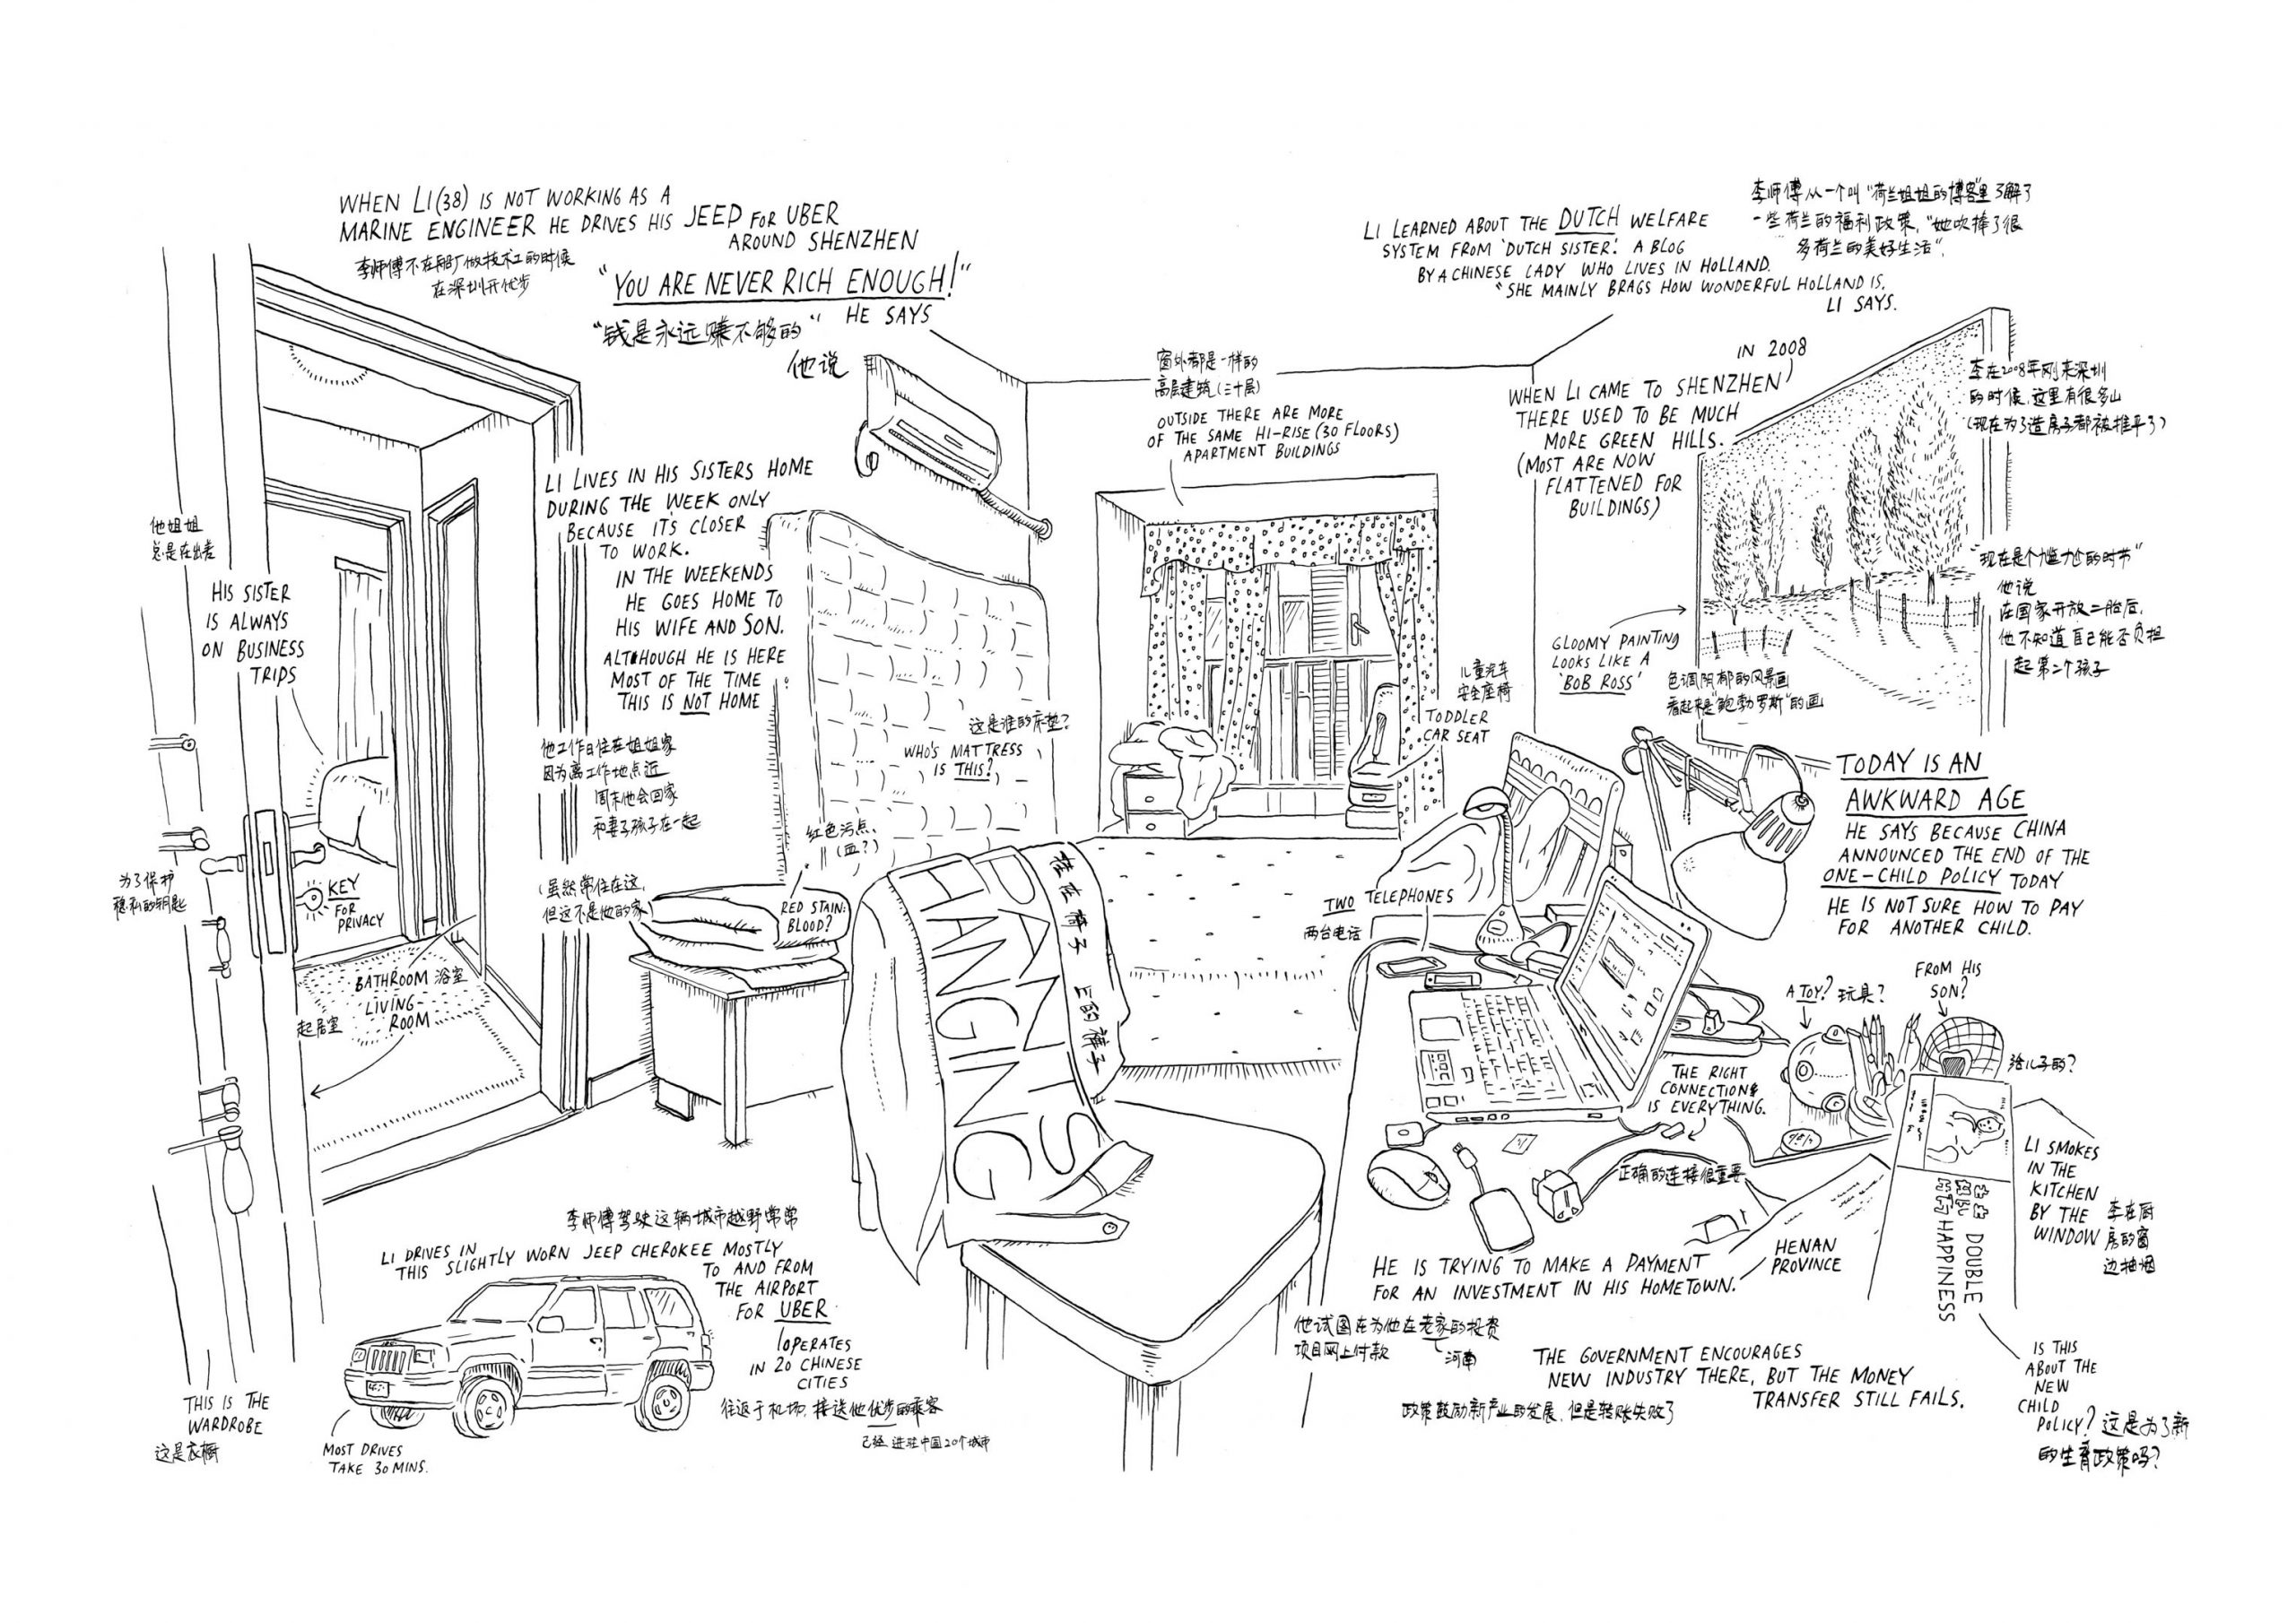 WHEN LI (38) IS NOT WORKING AS A
MARINE ENGINEER HE DRIVES HIS JEEP FOR UBER
AROUND SHENZHEN
李师傅不在船厂做技术工的时候
在深圳开优步
"YOU ARE NEVER RICH ENOUGH!"
HE SAYS
"钱是永远赚不够的"
他说
LI LEARNED ABOUT THE DUTCH WELFARE
SYSTEM FROM 'DUTCH SISTER'. A BLOG
BY A CHINESE LADY WHO LIVES IN HOLLAND.
"SHE MAINLY BRAGS HOW WONDERFUL HOLLAND IS.
LI SAYS.
李师傅从一个叫"荷兰姐姐的博客"里了解了
一些荷兰的福利政策, "她吹捧了很
多荷兰的美好生活".
IN 2008
WHEN LI CAME TO SHENZHEN
THERE USED TO BE MUCH
MORE GREEN HILLS.
(MOST ARE NOW
FLATTENED FOR
BUILDINGS)
李在2008年刚来深圳
的时候, 这里有很多山
(现在为了造房子都被推平了)
窗外都是一样的
高层建筑(三十层)
OUTSIDE THERE ARE MORE
OF THE SAME HI-RISE (30 FLOORS)
APARTMENT BUILDINGS
LI LIVES IN HIS SISTERS HOME
DURING THE WEEK ONLY
BECAUSE IT'S CLOSER
TO WORK.
IN THE WEEKENDS
HE GOES HOME TO
HIS WIFE AND SON.
ALTHOUGH HE IS HERE
MOST OF THE TIME
THIS IS NOT HOME
他工作日住在姐姐家
因为离工作地点近
周末他会回家
和妻子孩子在一起
(虽然常住在这,
但这不是他的家
他姐姐
总是在出差
HIS SISTER
IS ALWAYS
ON BUSINESS
TRIPS
为了保护
隐私的钥匙
KEY
FOR
PRIVACY
BATHROOM 浴室
LIVING-
ROOM
起居室
这是谁的床垫?
WHO'S MATTRESS
IS THIS?
红色污点,
(血?)
RED STAIN:
BLOOD?
PANTS
HANGING
挂在椅子上的裤子
儿童汽车
安全座椅
TODDLER
CAR SEAT
GLOOMY PAINTING
LOOKS LIKE A
'BOB ROSS'
色调阴郁的风景画
看起来是"鲍勃罗斯"的画
"现在是个尴尬的时节"
他说
在国家开放二胎后,
他不知道自己能否负担
起第二个孩子
TODAY IS AN
AWKWARD AGE
HE SAYS BECAUSE CHINA
ANNOUNCED THE END OF THE
ONE-CHILD POLICY TODAY
HE IS NOT SURE HOW TO PAY
FOR ANOTHER CHILD.
TWO TELEPHONES
两台电话
A TOY? 玩具?
FROM HIS
SON?
给儿子的?
THE RIGHT
CONNECTIONS
IS EVERYTHING.
正确的连接很重要
LI SMOKES
IN THE
KITCHEN
BY THE
WINDOW
李在厨
房的窗
边抽烟
DOUBLE
HAPPINESS
HE IS TRYING TO MAKE A PAYMENT
FOR AN INVESTMENT IN HIS HOMETOWN.
HENAN
PROVINCE
他试图在为他在老家的投资
项目网上付款
河南
THE GOVERNMENT ENCOURAGES
NEW INDUSTRY THERE, BUT THE MONEY
TRANSFER STILL FAILS.
政策鼓励新产业的发展, 但是转账失败了
IS THIS
ABOUT THE
NEW
CHILD
POLICY? 这是为了新
的生育政策吗?
李师傅驾驶这辆城市越野常常
LI DRIVES IN
THIS SLIGHTLY WORN JEEP CHEROKEE MOSTLY
TO AND FROM
THE AIRPORT
FOR UBER
OPERATES
IN 20 CHINESE
CITIES
往返于机场, 接送他优步的乘客
已经进驻中国20个城市
MOST DRIVES
TAKE 30 MINS.
THIS IS THE
WARDROBE
这是衣橱